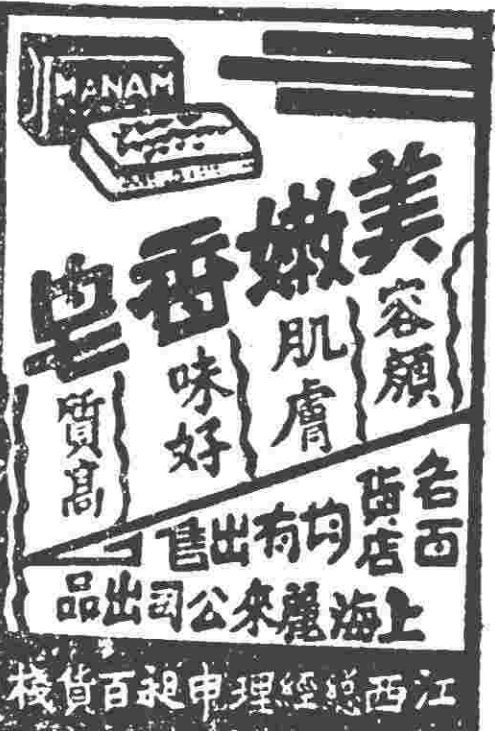 MANAM
美嫩香皂
容顏
肌膚
味好
質高
各百貨店均有出售
上海麗來公司出品
江西總經理申昶百貨棧